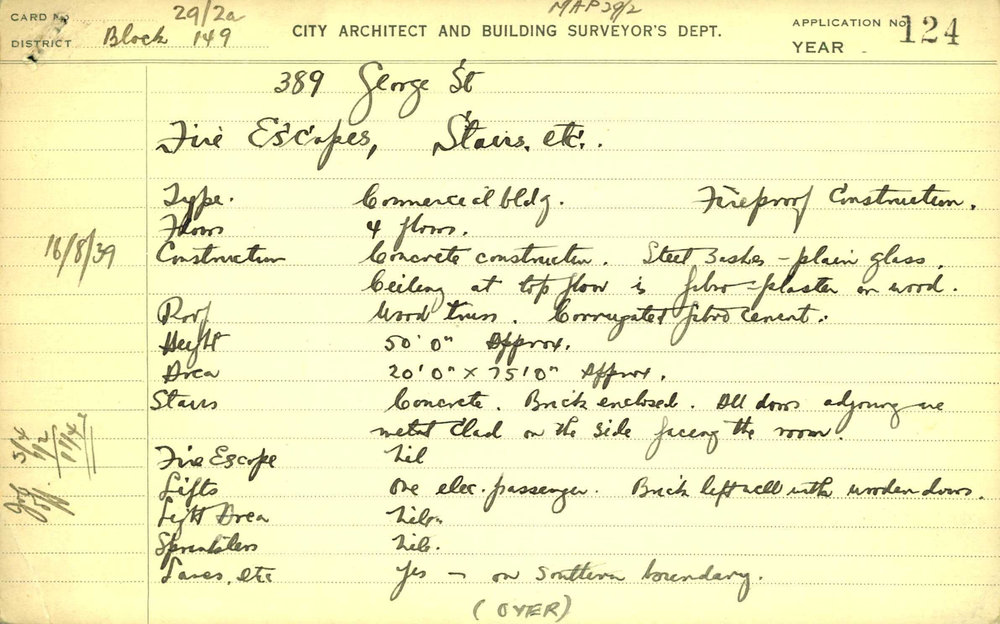 CARD No 29/2a
DISTRICT Block 149
MAP 29/2
CITY ARCHITECT AND BUILDING SURVEYOR'S DEPT.
APPLICATION No 124
YEAR
389 George St
Fire Escapes, Stairs, etc.
Type. Commercial bldg. Fireproof Construction.
Floors 4 floors.
16/8/39
Construction Concrete construction. Steel sashes - plain glass.
Ceiling at top floor is fibro-plaster on wood.
Roof Wood truss. Corrugated fibro cement.
Height 50'0" Approx.
Area 20'0" x 75'0" Approx.
Stairs Concrete. Brick enclosed. All doors adjoining are
metal clad on the side facing the room.
Fire Escope Nil
Lifts One elec. passenger. Brick lift well with wooden doors.
Light Area Nil.
Sprinklers Nil.
Lanes, etc Yes - on Southern boundary.
(OVER)
3/4
1/2
1 1/4